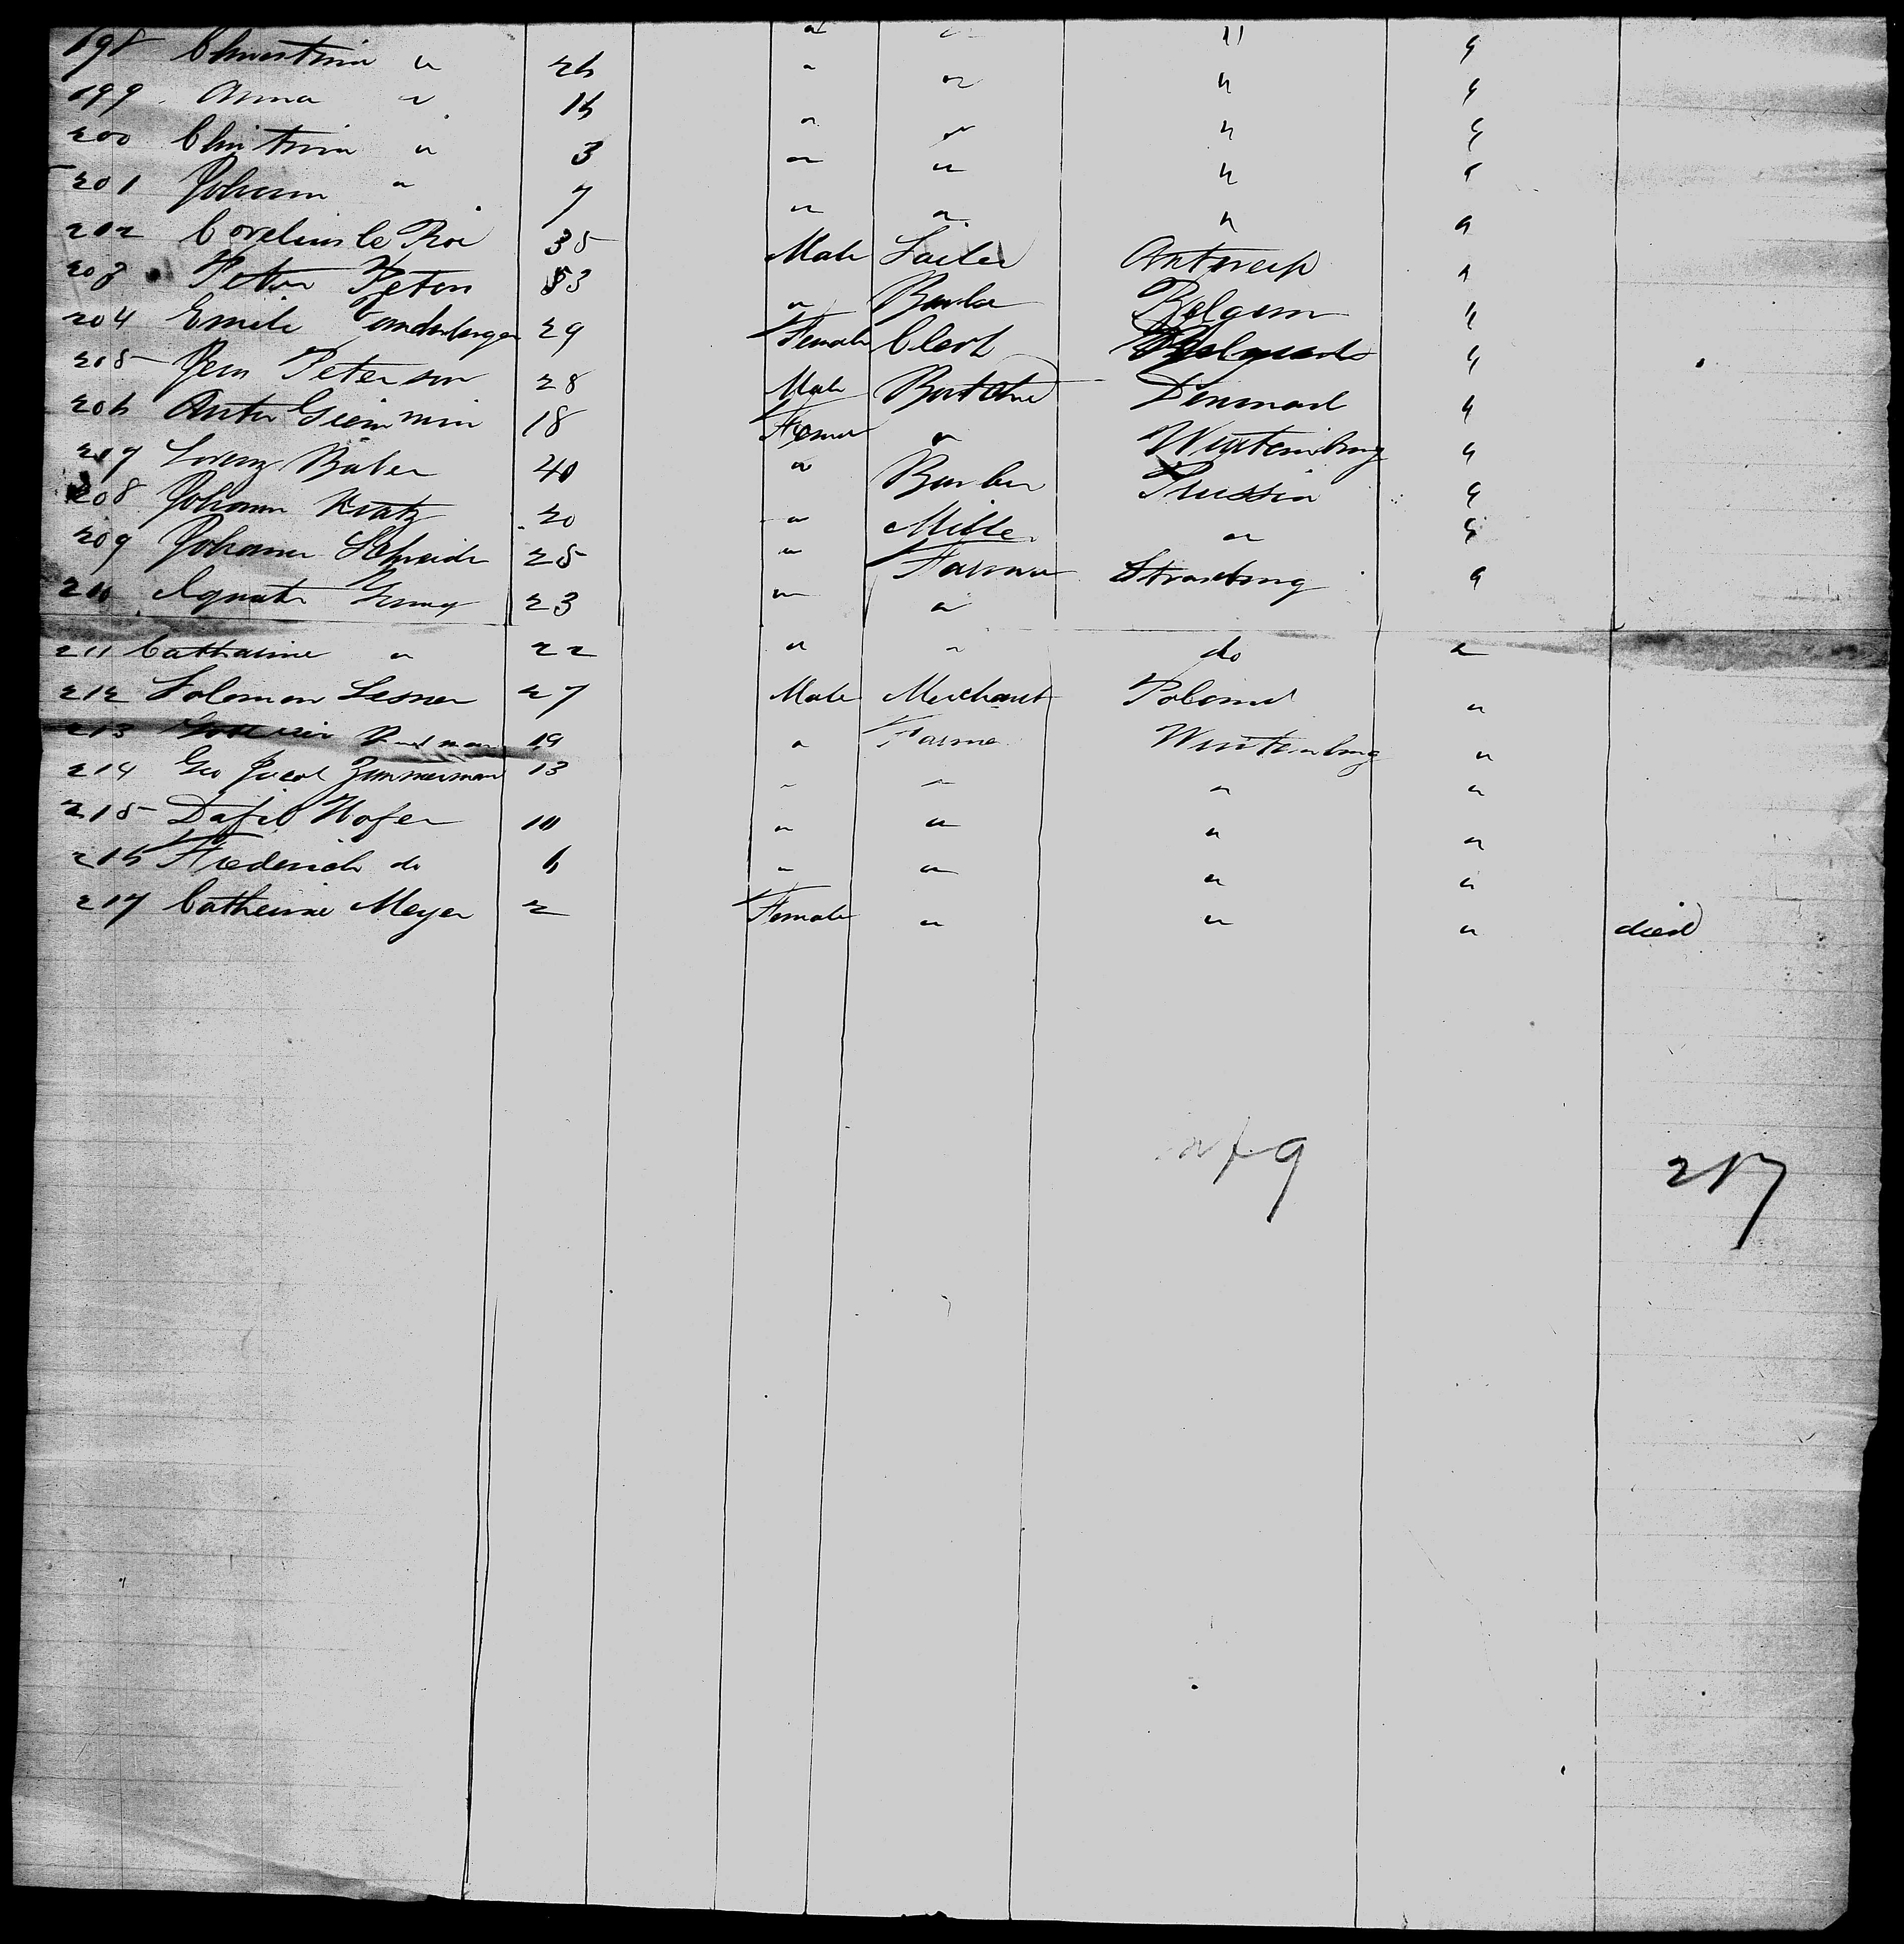 198 Christina " 26 " " " "
199 Anna " 16 " " " "
200 Christina " 3 " " " "
201 Johann " 7 " " " "
202 Cornelius le Roi 35 Male Sailer Antwerp "
203 Peter Peters 53 " Barber Belgem "
204 Emile Vanderbergen 29 Female Clerk "
205 Jens Peterson 28 Male Butcher Denmark "
206 Anton 18 Female " Wurtemburg "
207 Lorenz Baber 40 " Barber Prussia "
208 Johann Kratz 20 " Miller " "
209 Johann Schneider 25 " Farmer Strasburg "
210 23 " "
211 Catharine " 22 " " do "
212 Solomon Lesner 27 Male Merchant Poland "
213 19 " Farmer Wurtemburg "
214 Geo Jacob Zimmerman 13 " " " "
215 Hofer 10 " " " "
216 Frederich do 6 " " " "
217 Catherine Meyer 2 Female " " " died
217